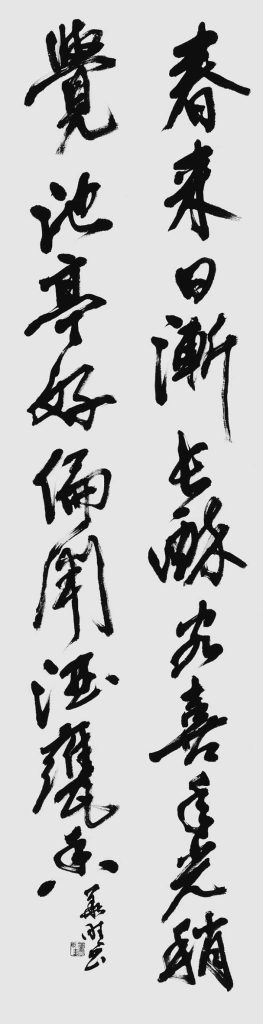 春来日漸長醉客喜年光稍
覺池亭好偏聞酒甕香